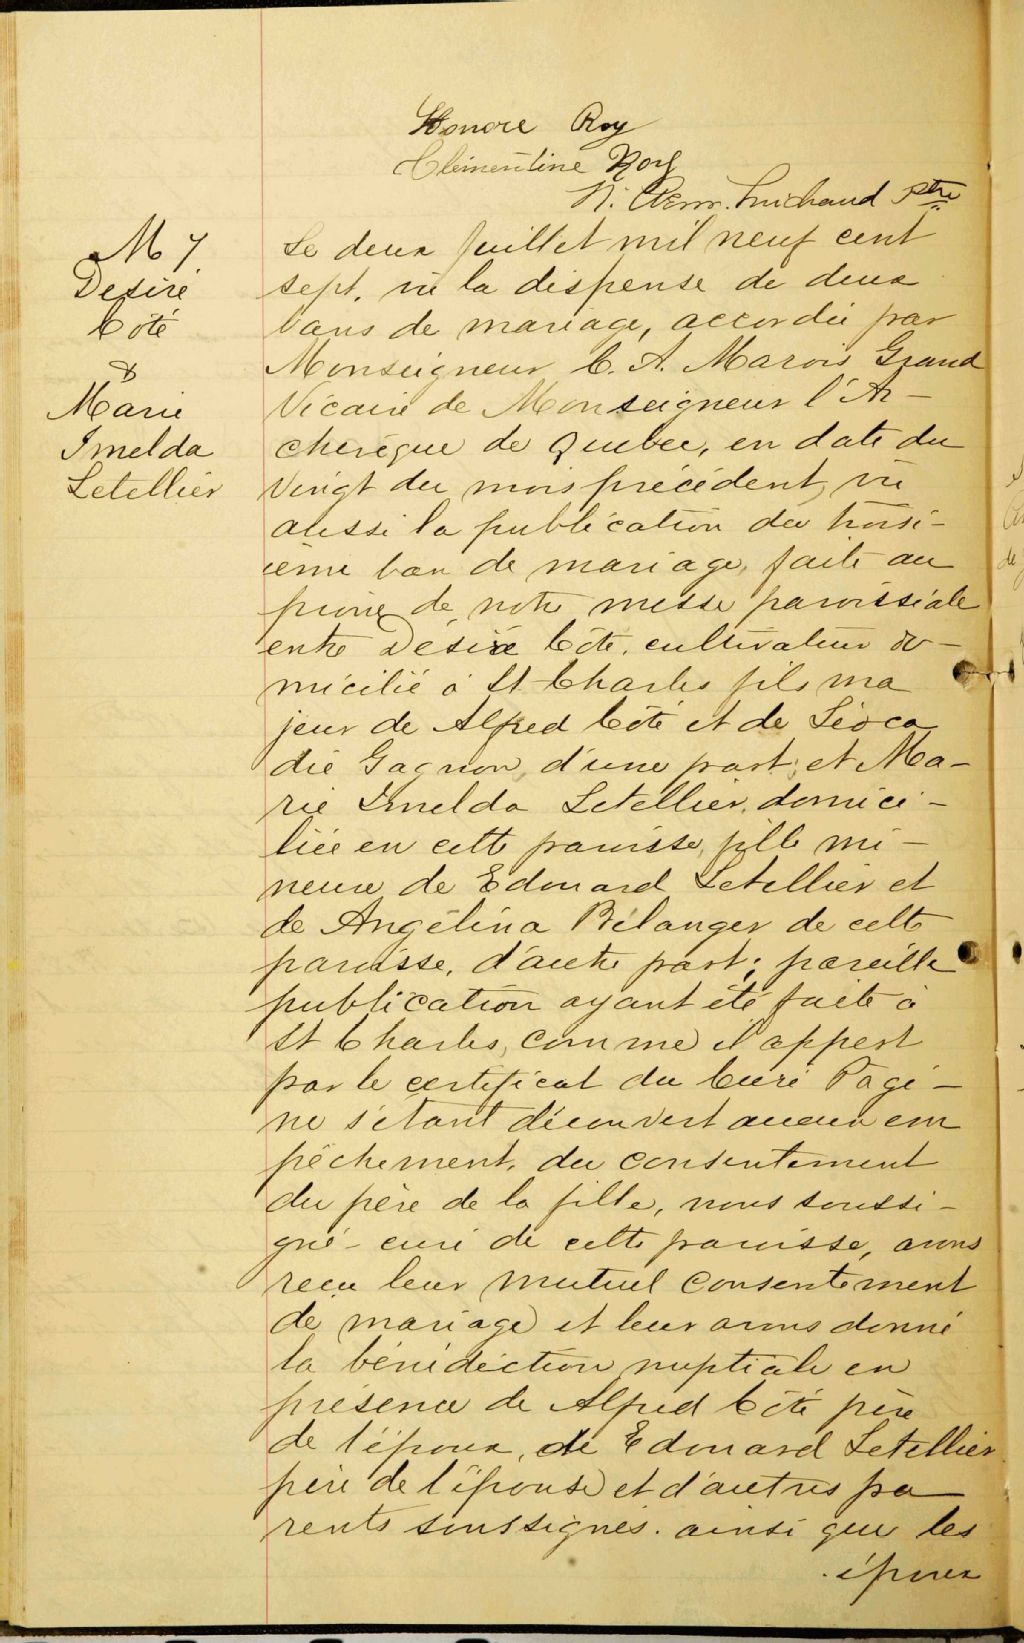 Honoré Roy
Clémentine Roy
N. Michaud Ptre
M 7
Desiré
Coté
&
Marie
Imelda
Letellier
Le deux Juillet mil neuf cent
sept, vu la dispense de deux
bans de mariage, accordée par
Monseigneur C. A. Marois Grand
Vicaire de Monseigneur l'Ar-
chevêque de Québec, en date du
vingt du mois précédent, vu
aussi la publication du troisi-
ième ban de mariage, faite au
prône de notre messe paroissiale
entre Désiré Côté, cultivateur do-
micilié à St Charles fils ma
jeur de Alfred Côté et de Léoca
die Gagnon, d'une part; et Ma-
rie Imelda Letellier, domici-
liée en cette paroisse, fille mi-
neure de Edouard Letellier et
de Angélina Bélanger de cette
paroisse, d'autre part; pareille
publication ayant été faite à
St Charles, comme il appert
par le certificat du Curé Pagé-
ne s'étant découvert aucun em
pêchement, du consentement
du père de la fille, nous soussi-
gné curé de cette paroisse, avons
reçu leur mutuel consentement
de mariage et leur avons donné
la bénédiction nuptiale en
présence de Alfred Côté père
de l'époux, de Edouard Letellier
père de l'épouse et d'autres pa
rents soussignés. ainsi que les
époux